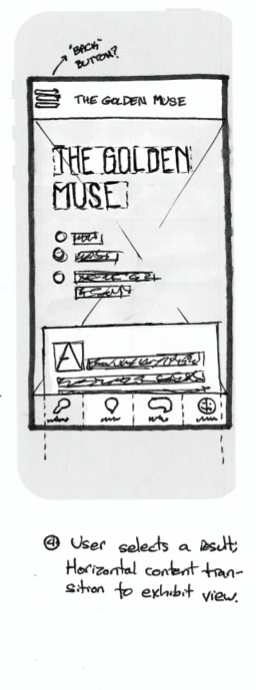 "BACK"
BUTTON?
THE GOLDEN MUSE
THE GOLDEN
MUSE
A
④ User selects a result;
Horizontal content tran-
sition to exhibit view.